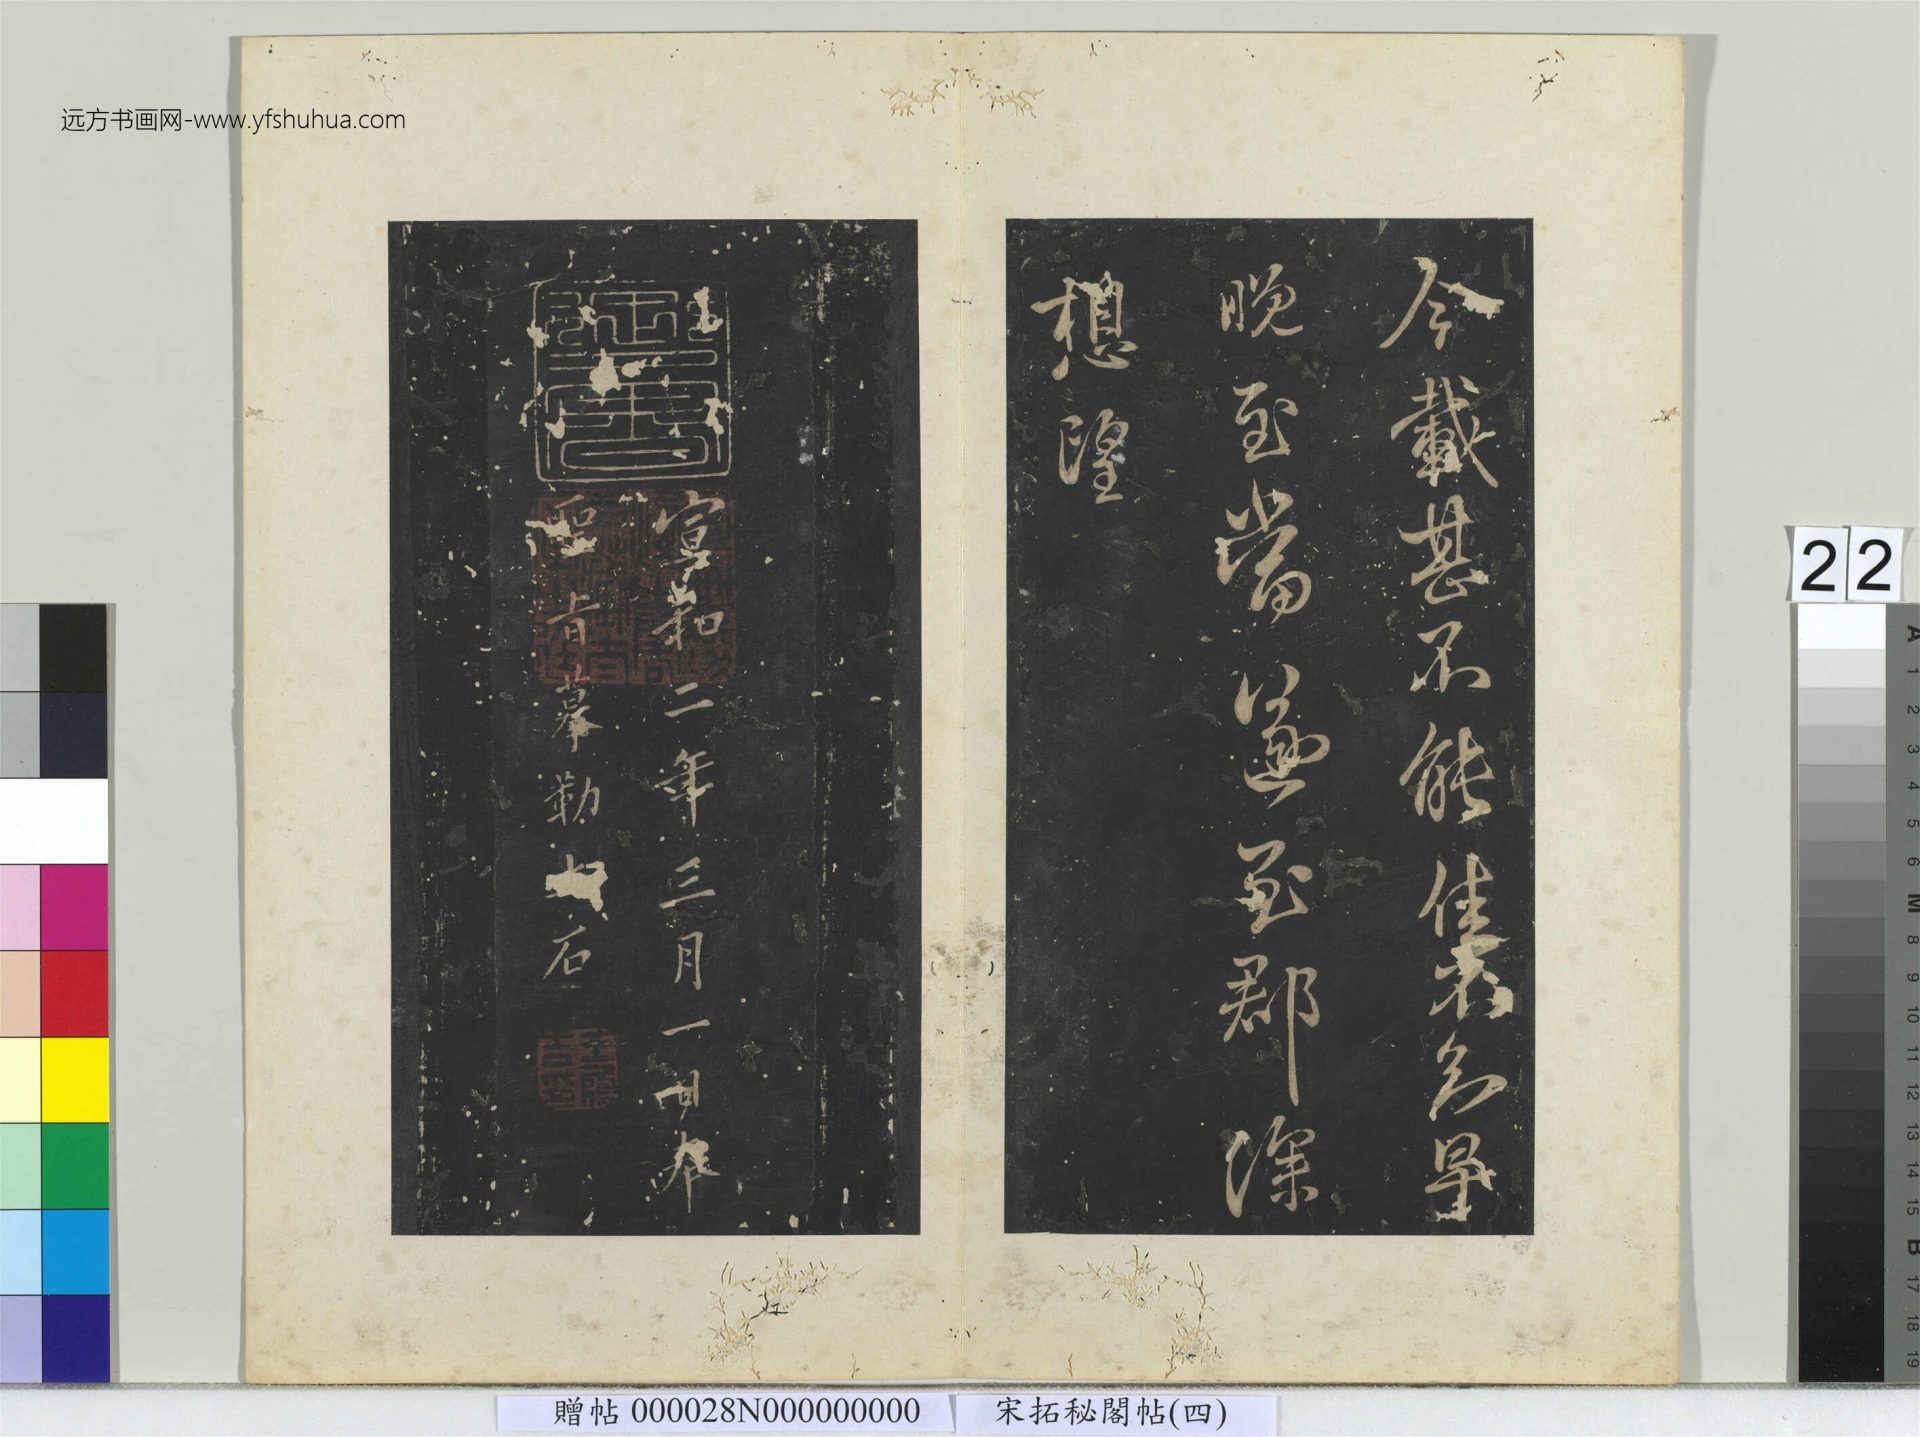 远方书画网-www.yfshuhua.com
今載甚不能佳衰知早
晚至當遂至郡深
想望
御書
宣和二年三月一日奉
聖旨摹勒上石
22
A 1 2 3 4 5 6 M 8 9 10 11 12 13 14 15 B 17 18 19
贈帖 000028N000000000
宋拓秘閣帖(四)